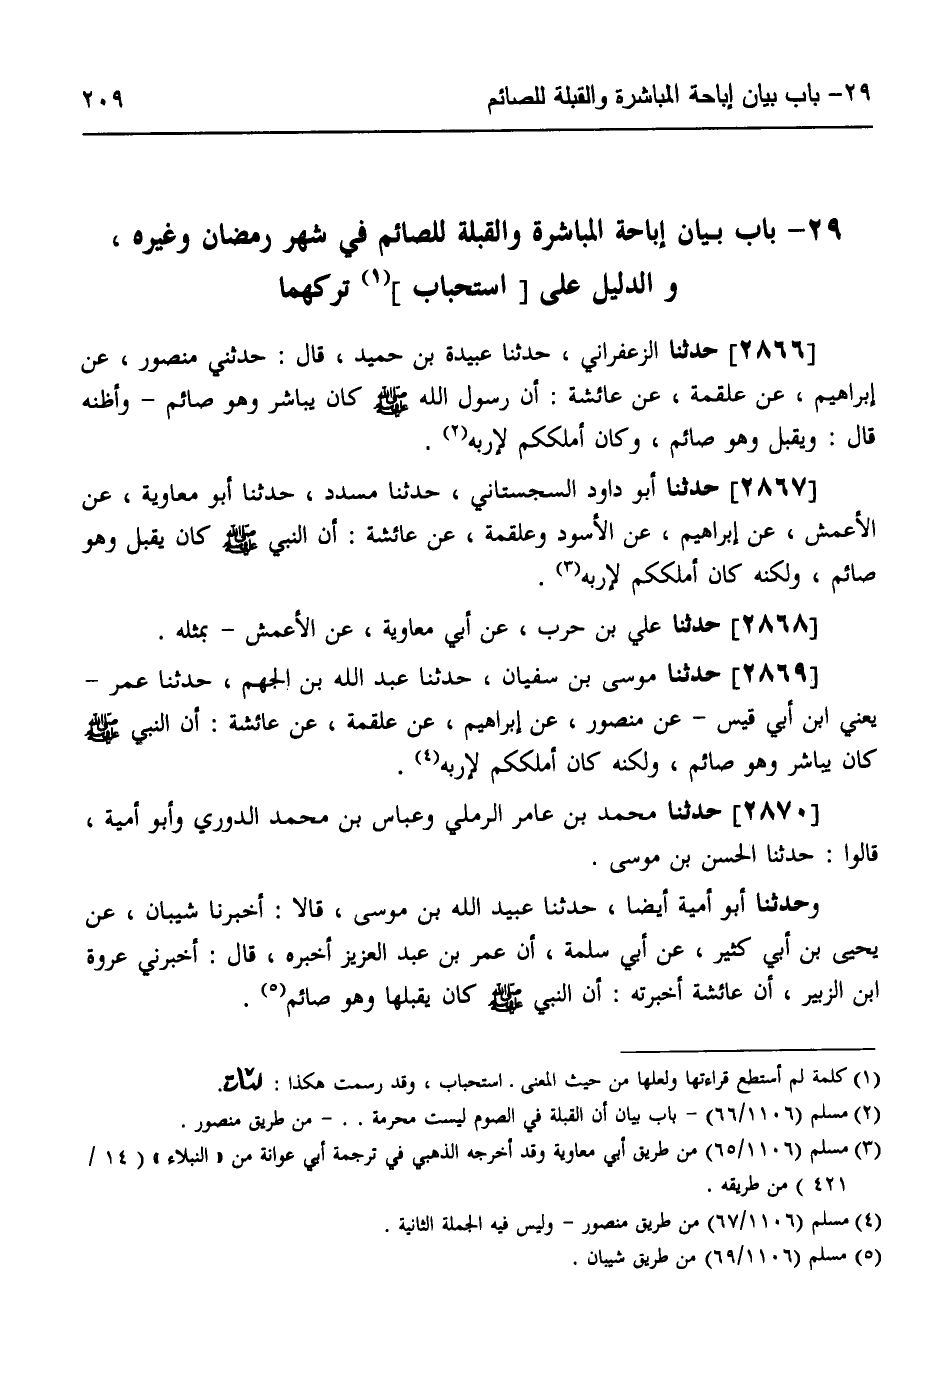 ٢٩- باب بيان إباحة المباشرة والقبلة للصائم ٢٠٩
٢٩- باب بيان إباحة المباشرة والقبلة للصائم في شهر رمضان وغيره ،
و الدليل على [ استحباب ](١) تركهما
[٢٨٦٦] حدثنا الزعفراني ، حدثنا عبيدة بن حميد ، قال : حدثني منصور ، عن
إبراهيم ، عن علقمة ، عن عائشة : أن رسول الله ﷺ كان يباشر وهو صائم – وأظنه
قال : ويقبل وهو صائم ، وكان أملككم لإربه(٢) .
[٢٨٦٧] حدثنا أبو داود السجستاني ، حدثنا مسدد ، حدثنا أبو معاوية ، عن
الأعمش ، عن إبراهيم ، عن الأسود وعلقمة ، عن عائشة : أن النبي ﷺ كان يقبل وهو
صائم ، ولكنه كان أملككم لإربه(٣) .
[٢٨٦٨] حدثنا علي بن حرب ، عن أبي معاوية ، عن الأعمش – بمثله .
[٢٨٦٩] حدثنا موسى بن سفيان ، حدثنا عبد الله بن الجهم ، حدثنا عمر –
يعني ابن أبي قيس – عن منصور ، عن إبراهيم ، عن علقمة ، عن عائشة : أن النبي ﷺ
كان يباشر وهو صائم ، ولكنه كان أملككم لإربه(٤) .
[٢٨٧٠] حدثنا محمد بن عامر الرملي وعباس بن محمد الدوري وأبو أمية ،
قالوا : حدثنا الحسن بن موسى .
وحدثنا أبو أمية أيضا ، حدثنا عبيد الله بن موسى ، قالا : أخبرنا شيبان ، عن
يحيى بن أبي كثير ، عن أبي سلمة ، أن عمر بن عبد العزيز أخبره ، قال : أخبرني عروة
ابن الزبير ، أن عائشة أخبرته : أن النبي ﷺ كان يقبلها وهو صائم(٥) .
(١) كلمة لم أستطع قراءتها ولعلها من حيث المعنى . استحباب ، وقد رسمت هكذا : .
(٢) مسلم (٦٦/١١٠٦) – باب بيان أن القبلة في الصوم ليست محرمة . . – من طريق منصور .
(٣) مسلم (٦٥/١١٠٦) من طريق أبي معاوية وقد أخرجه الذهبي في ترجمة أبي عوانة من « النبلاء » ( ١٤ /
٤٢١ ) من طريقه .
(٤) مسلم (٦٧/١١٠٦) من طريق منصور – وليس فيه الجملة الثانية .
(٥) مسلم (٦٩/١١٠٦) من طريق شيبان .